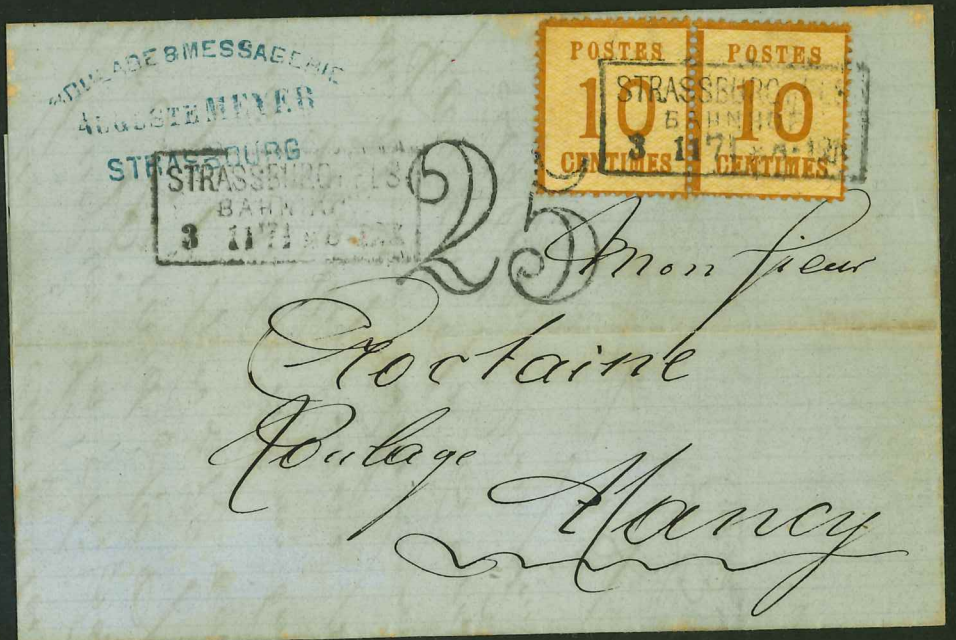 ROULAGE & MESSAGERIE
AUGUSTE MEYER
STRASSBOURG
STRASSBURG ELS
BAHNHOF
3 11 71
POSTES
10
CENTIMES
POSTES
10
CENTIMES
STRASSBURG ELS
BAHNHOF
3 11 71
25
Monsieur
Roulage
Nancy